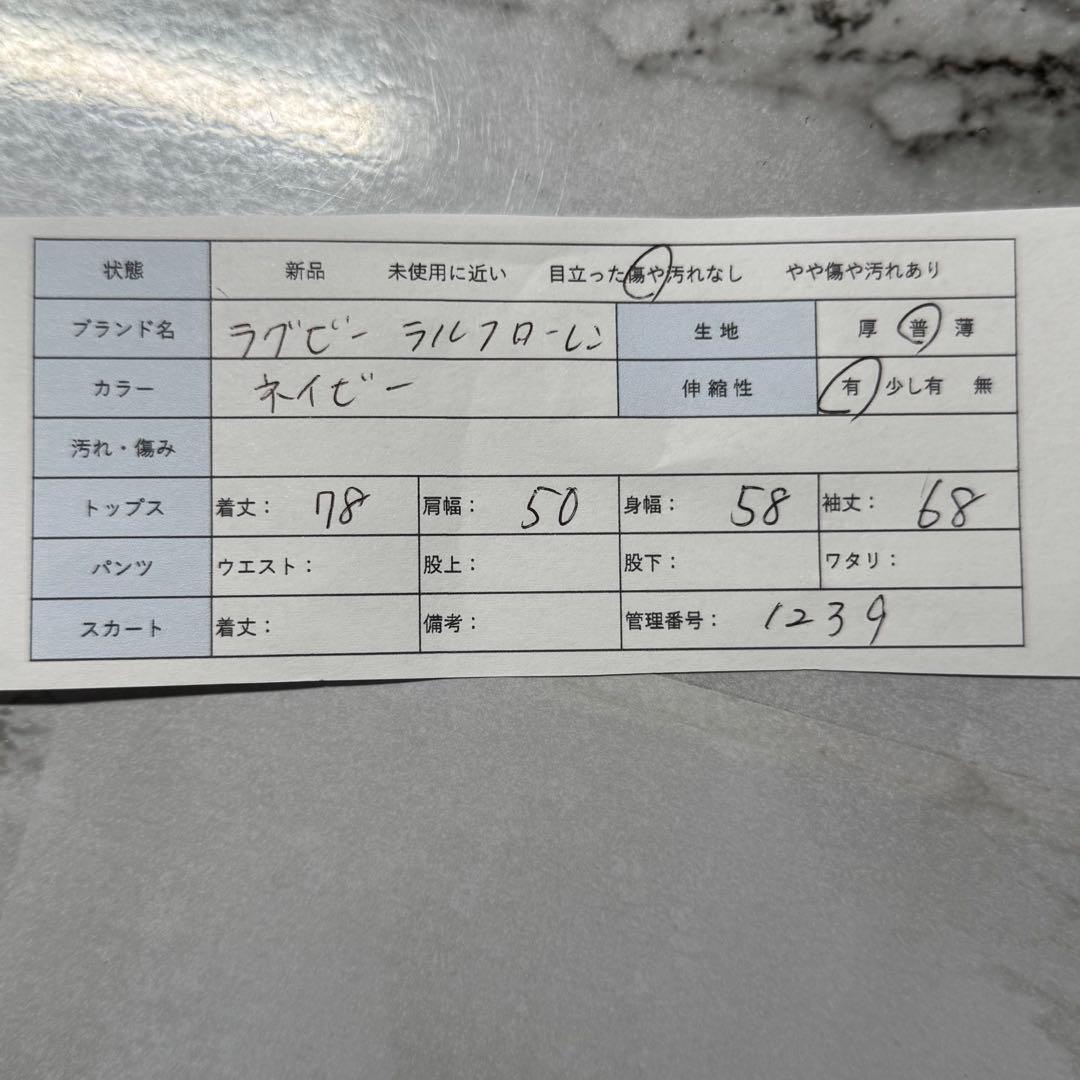 状態 新品 未使用に近い 目立った傷や汚れなし やや傷や汚れあり
ブランド名 ラグビー ラルフローレン 生地 厚 普 薄
カラー ネイビー 伸縮性 有 少し有 無
汚れ・傷み
トップス 着丈: 78 肩幅: 50 身幅: 58 袖丈: 68
パンツ ウエスト: 股上: 股下: ワタリ:
スカート 着丈: 備考: 管理番号: 1239